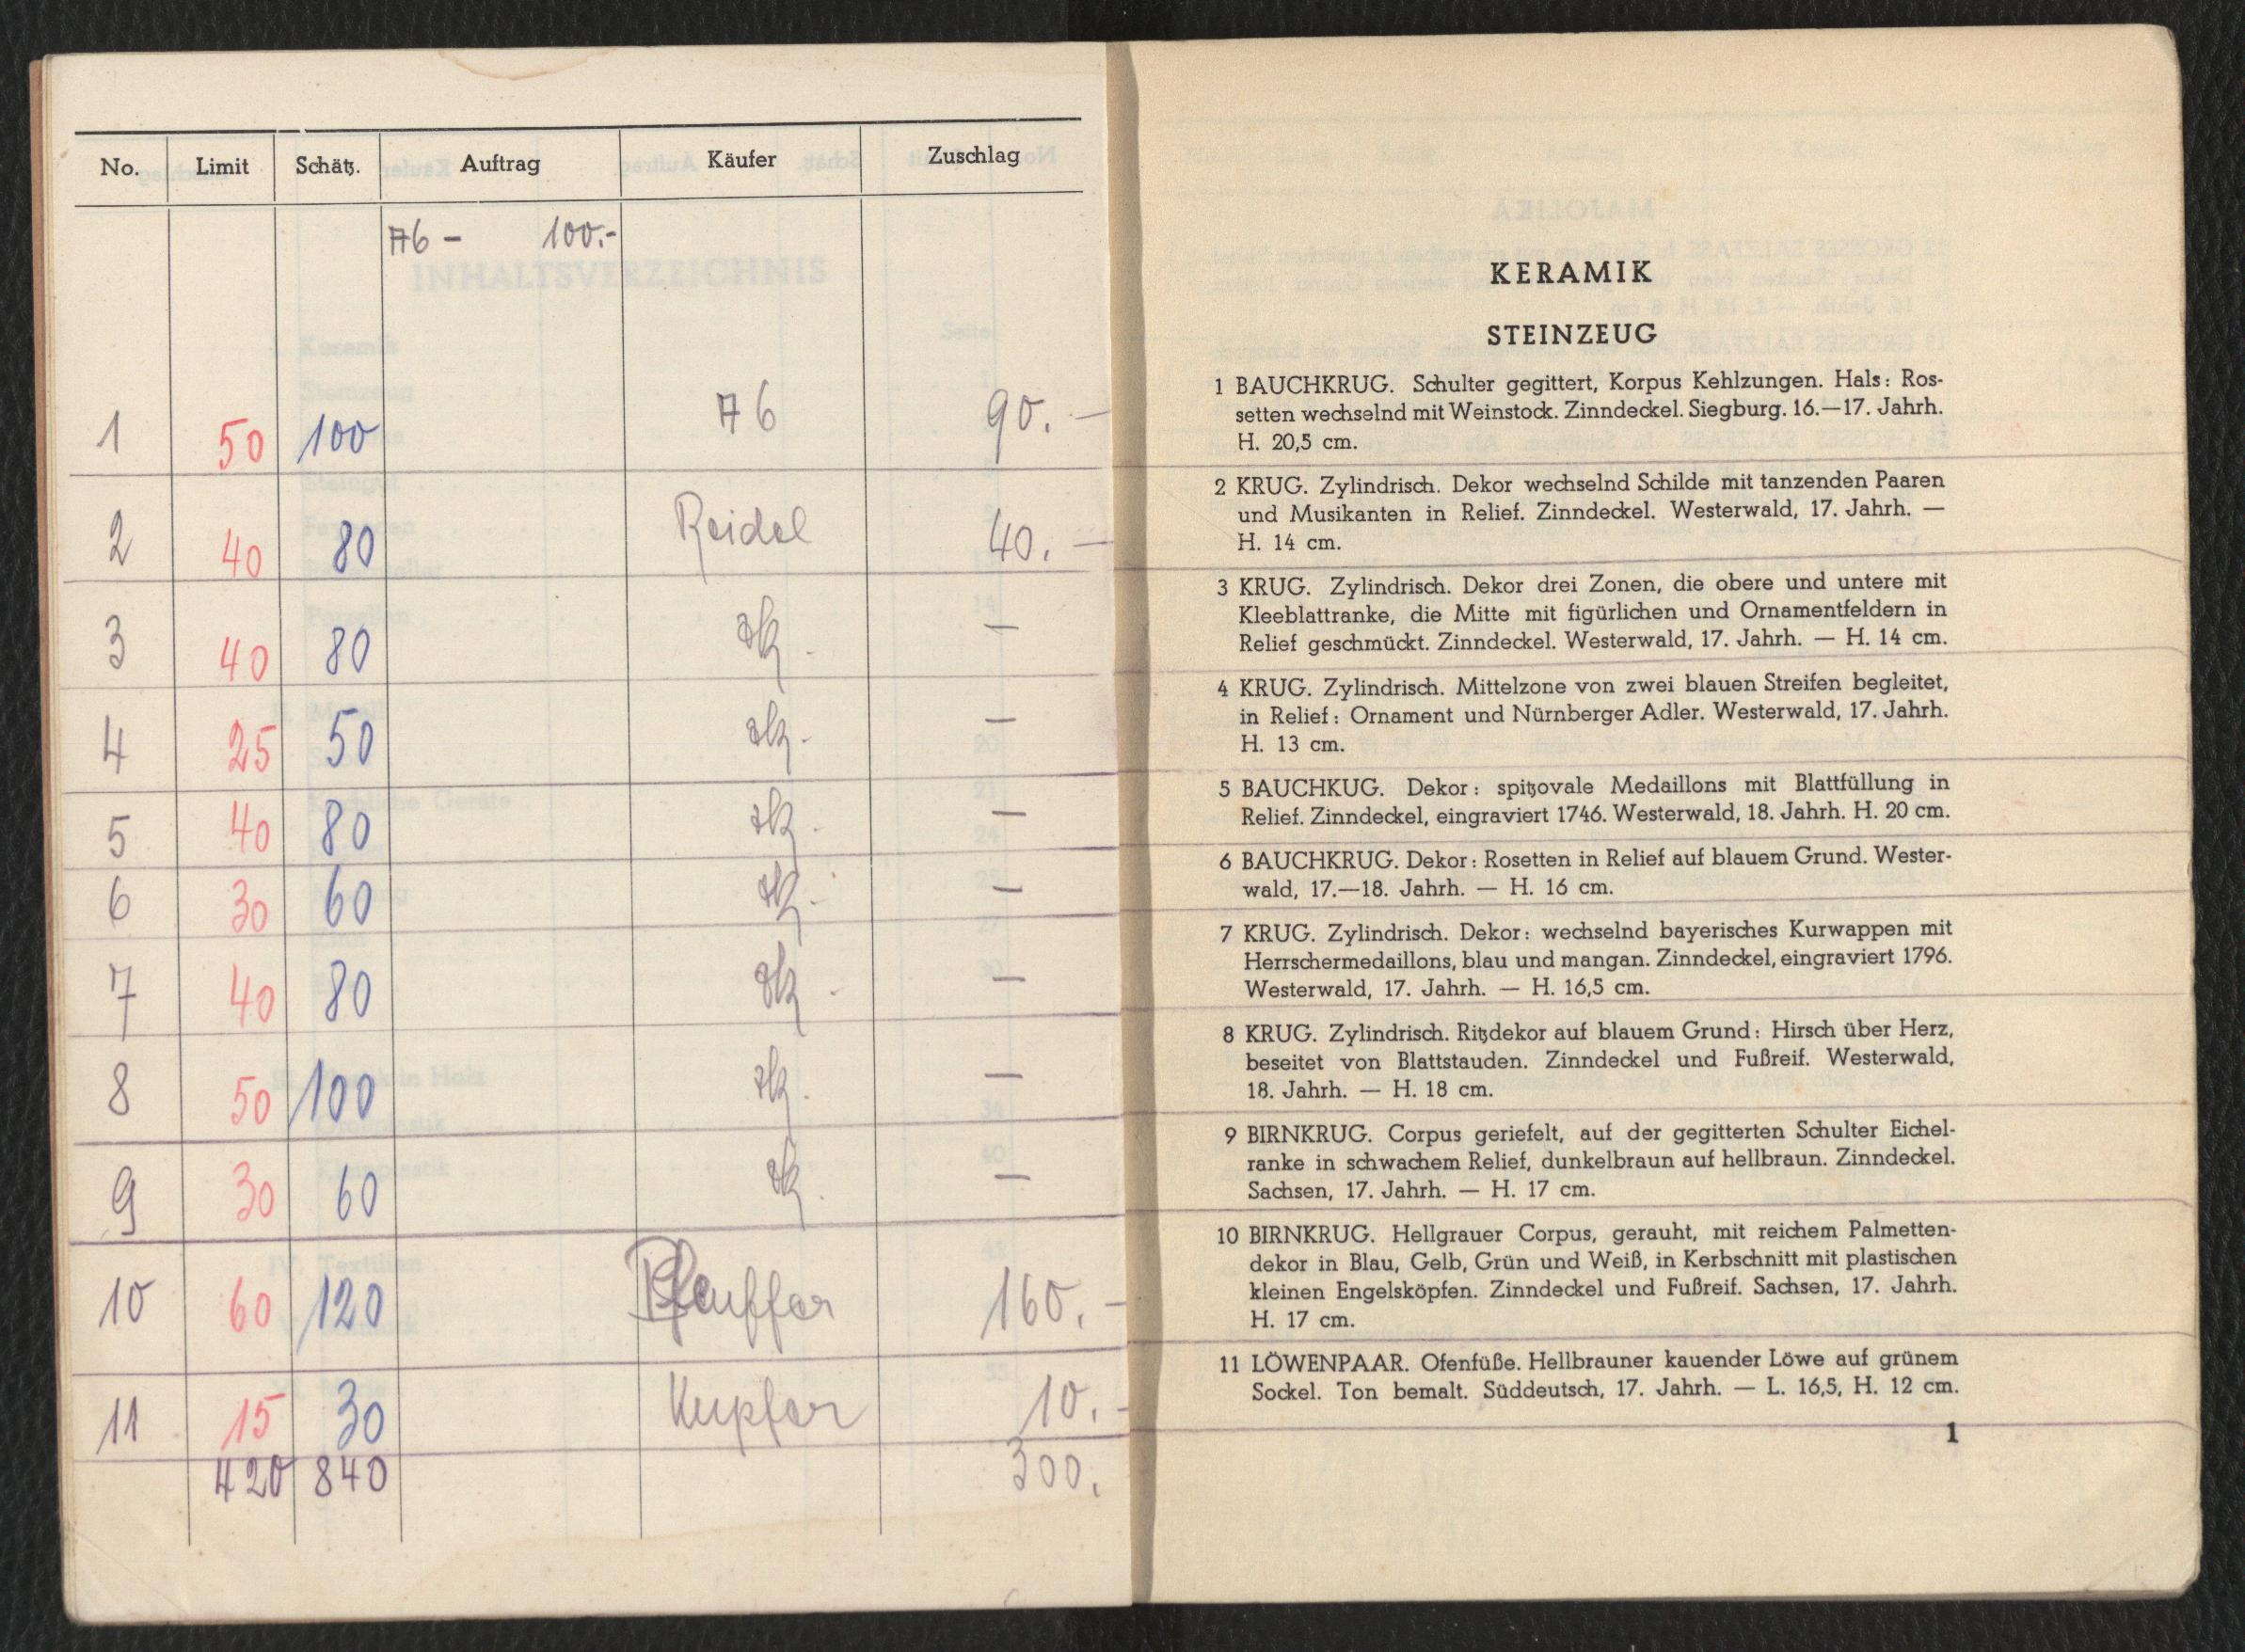 No. Limit Schätz. Auftrag Käufer Zuschlag
76 – 100.-
1 50 100 76 90.–
2 40 80 Reidel 40.–
3 40 80 –
4 25 50 –
5 40 80 –
6 30 60 –
7 40 80 –
8 50 100 –
9 30 60 –
10 60 120 160.–
11 15 30 Kupfer 10.-
420 840 300.
KERAMIK
STEINZEUG
1 BAUCHKRUG. Schulter gegittert, Korpus Kehlzungen. Hals: Ros-
setten wechselnd mit Weinstock. Zinndeckel. Siegburg. 16.—17. Jahrh.
H. 20,5 cm.
2 KRUG. Zylindrisch. Dekor wechselnd Schilde mit tanzenden Paaren
und Musikanten in Relief. Zinndeckel. Westerwald, 17. Jahrh. —
H. 14 cm.
3 KRUG. Zylindrisch. Dekor drei Zonen, die obere und untere mit
Kleeblattranke, die Mitte mit figürlichen und Ornamentfeldern in
Relief geschmückt. Zinndeckel. Westerwald, 17. Jahrh. — H. 14 cm.
4 KRUG. Zylindrisch. Mittelzone von zwei blauen Streifen begleitet,
in Relief: Ornament und Nürnberger Adler. Westerwald, 17. Jahrh.
H. 13 cm.
5 BAUCHKUG. Dekor: spitzovale Medaillons mit Blattfüllung in
Relief. Zinndeckel, eingraviert 1746. Westerwald, 18. Jahrh. H. 20 cm.
6 BAUCHKRUG. Dekor: Rosetten in Relief auf blauem Grund. Wester-
wald, 17.—18. Jahrh. — H. 16 cm.
7 KRUG. Zylindrisch. Dekor: wechselnd bayerisches Kurwappen mit
Herrschermedaillons, blau und mangan. Zinndeckel, eingraviert 1796.
Westerwald, 17. Jahrh. — H. 16,5 cm.
8 KRUG. Zylindrisch. Ritzdekor auf blauem Grund: Hirsch über Herz,
beseitet von Blattstauden. Zinndeckel und Fußreif. Westerwald,
18. Jahrh. — H. 18 cm.
9 BIRNKRUG. Corpus geriefelt, auf der gegitterten Schulter Eichel-
ranke in schwachem Relief, dunkelbraun auf hellbraun. Zinndeckel.
Sachsen, 17. Jahrh. — H. 17 cm.
10 BIRNKRUG. Hellgrauer Corpus, gerauht, mit reichem Palmetten-
dekor in Blau, Gelb, Grün und Weiß, in Kerbschnitt mit plastischen
kleinen Engelsköpfen. Zinndeckel und Fußreif. Sachsen, 17. Jahrh.
H. 17 cm.
11 LÖWENPAAR. Ofenfüße. Hellbrauner kauender Löwe auf grünem
Sockel. Ton bemalt. Süddeutsch, 17. Jahrh. — L. 16,5, H. 12 cm.
1